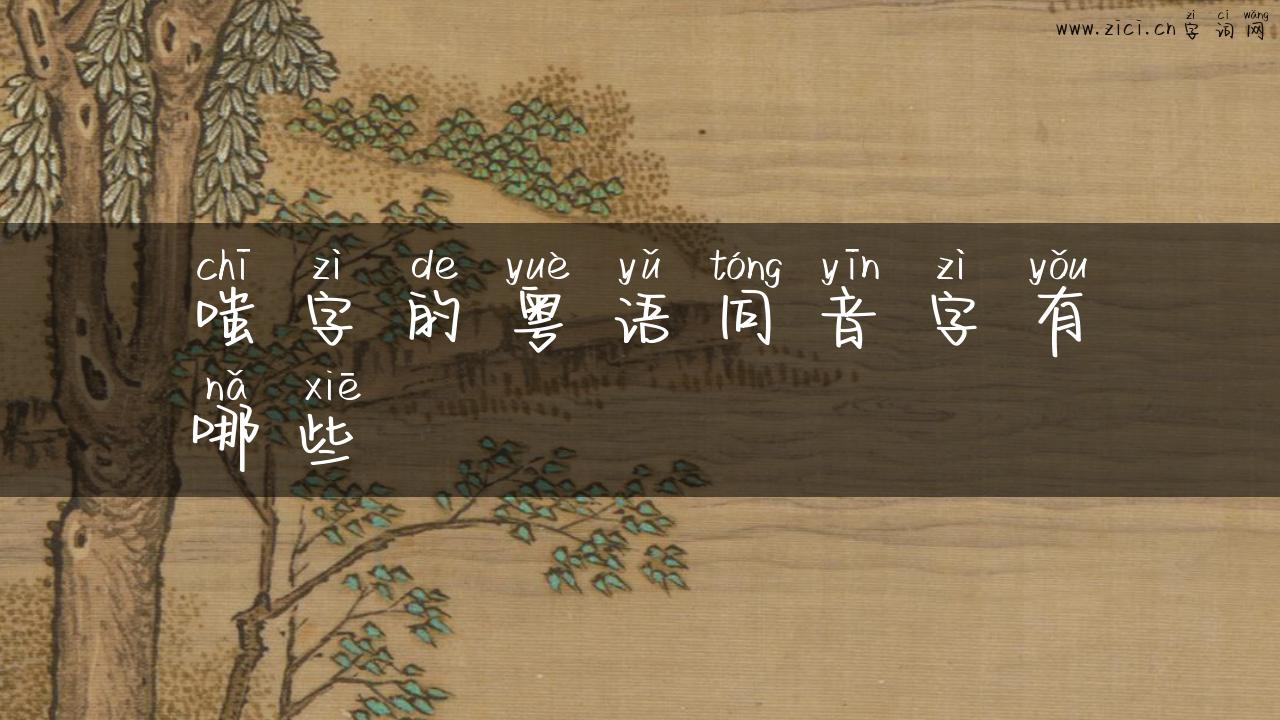 zì cí wǎng
www.zici.cn 字词网
chī zì de yuè yǔ tóng yīn zì yǒu
嗤字的粤语同音字有
nǎ xiē
哪些